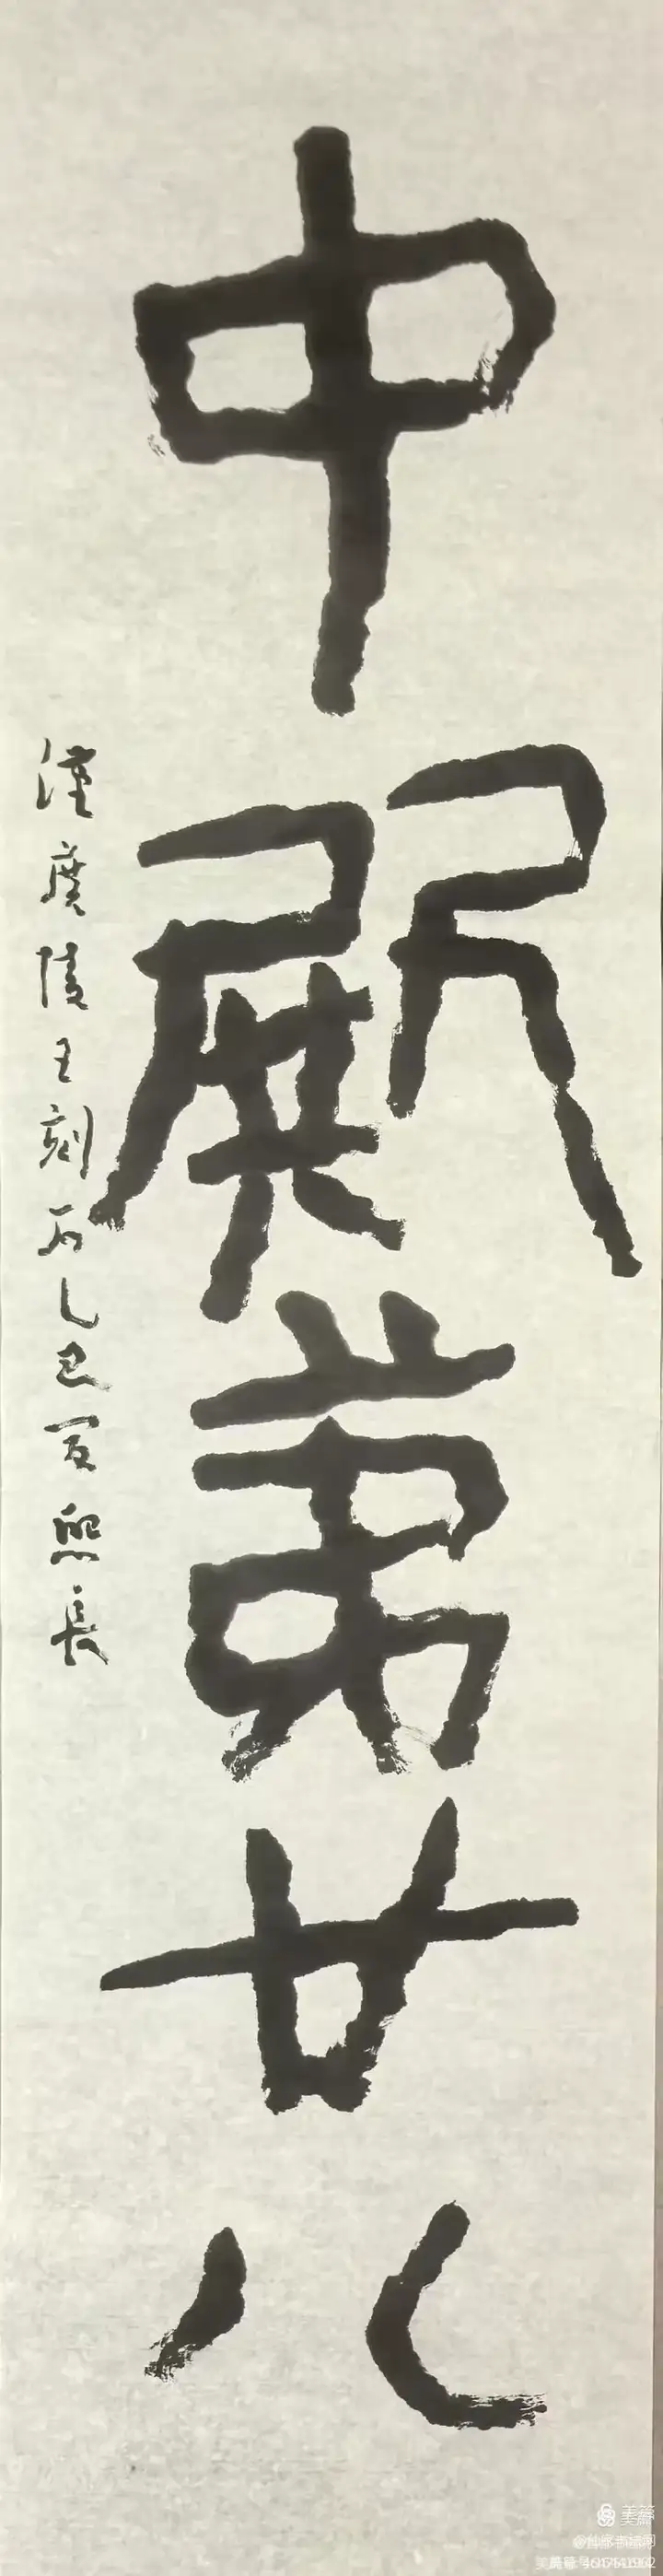 中殿第廿八
漢廣陵王刻石乙巳夏熙長
美篇